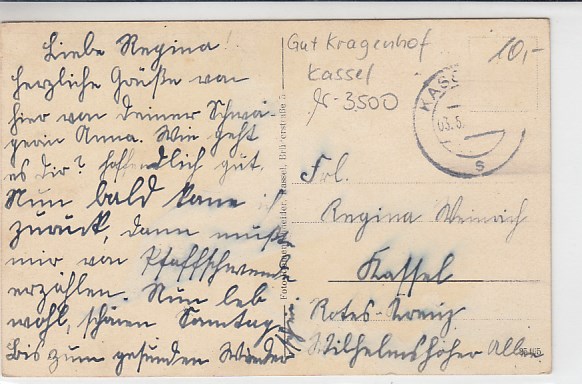 Liebe Regina!
herzliche Grüße von
hier von Deiner Schwä-
gerin Anna. Wie geht
es dir? hoffendlich gut.
Nun bald kome ich
zurück, dann mußt
mir von Pfaffschwende
erzählen. Nun leb
wohl, schönen Sonntag
Bis zum gesunden Wieder
sehen
Gut Kragenhof
Kassel
3500
10,-
KASS
03.5.
s
Kassel, Brüderstraße 5
Frl.
Regina Weinrich
Kassel
Rotes-Kreuz
Wilhelmshöher Allee